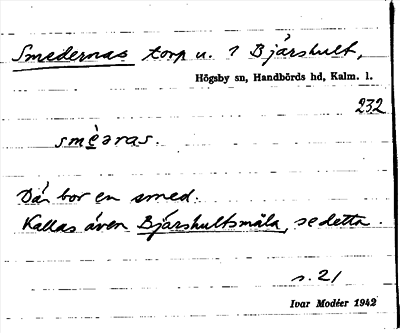 Smedernas torp u. 1 Bjärshult,
Högsby sn, Handbörds hd, Kalm. l.
232
smèaras.
Där bor en smed.
Kallas även Bjärshultsmåla, se detta.
s. 21
Ivar Modéer 1942